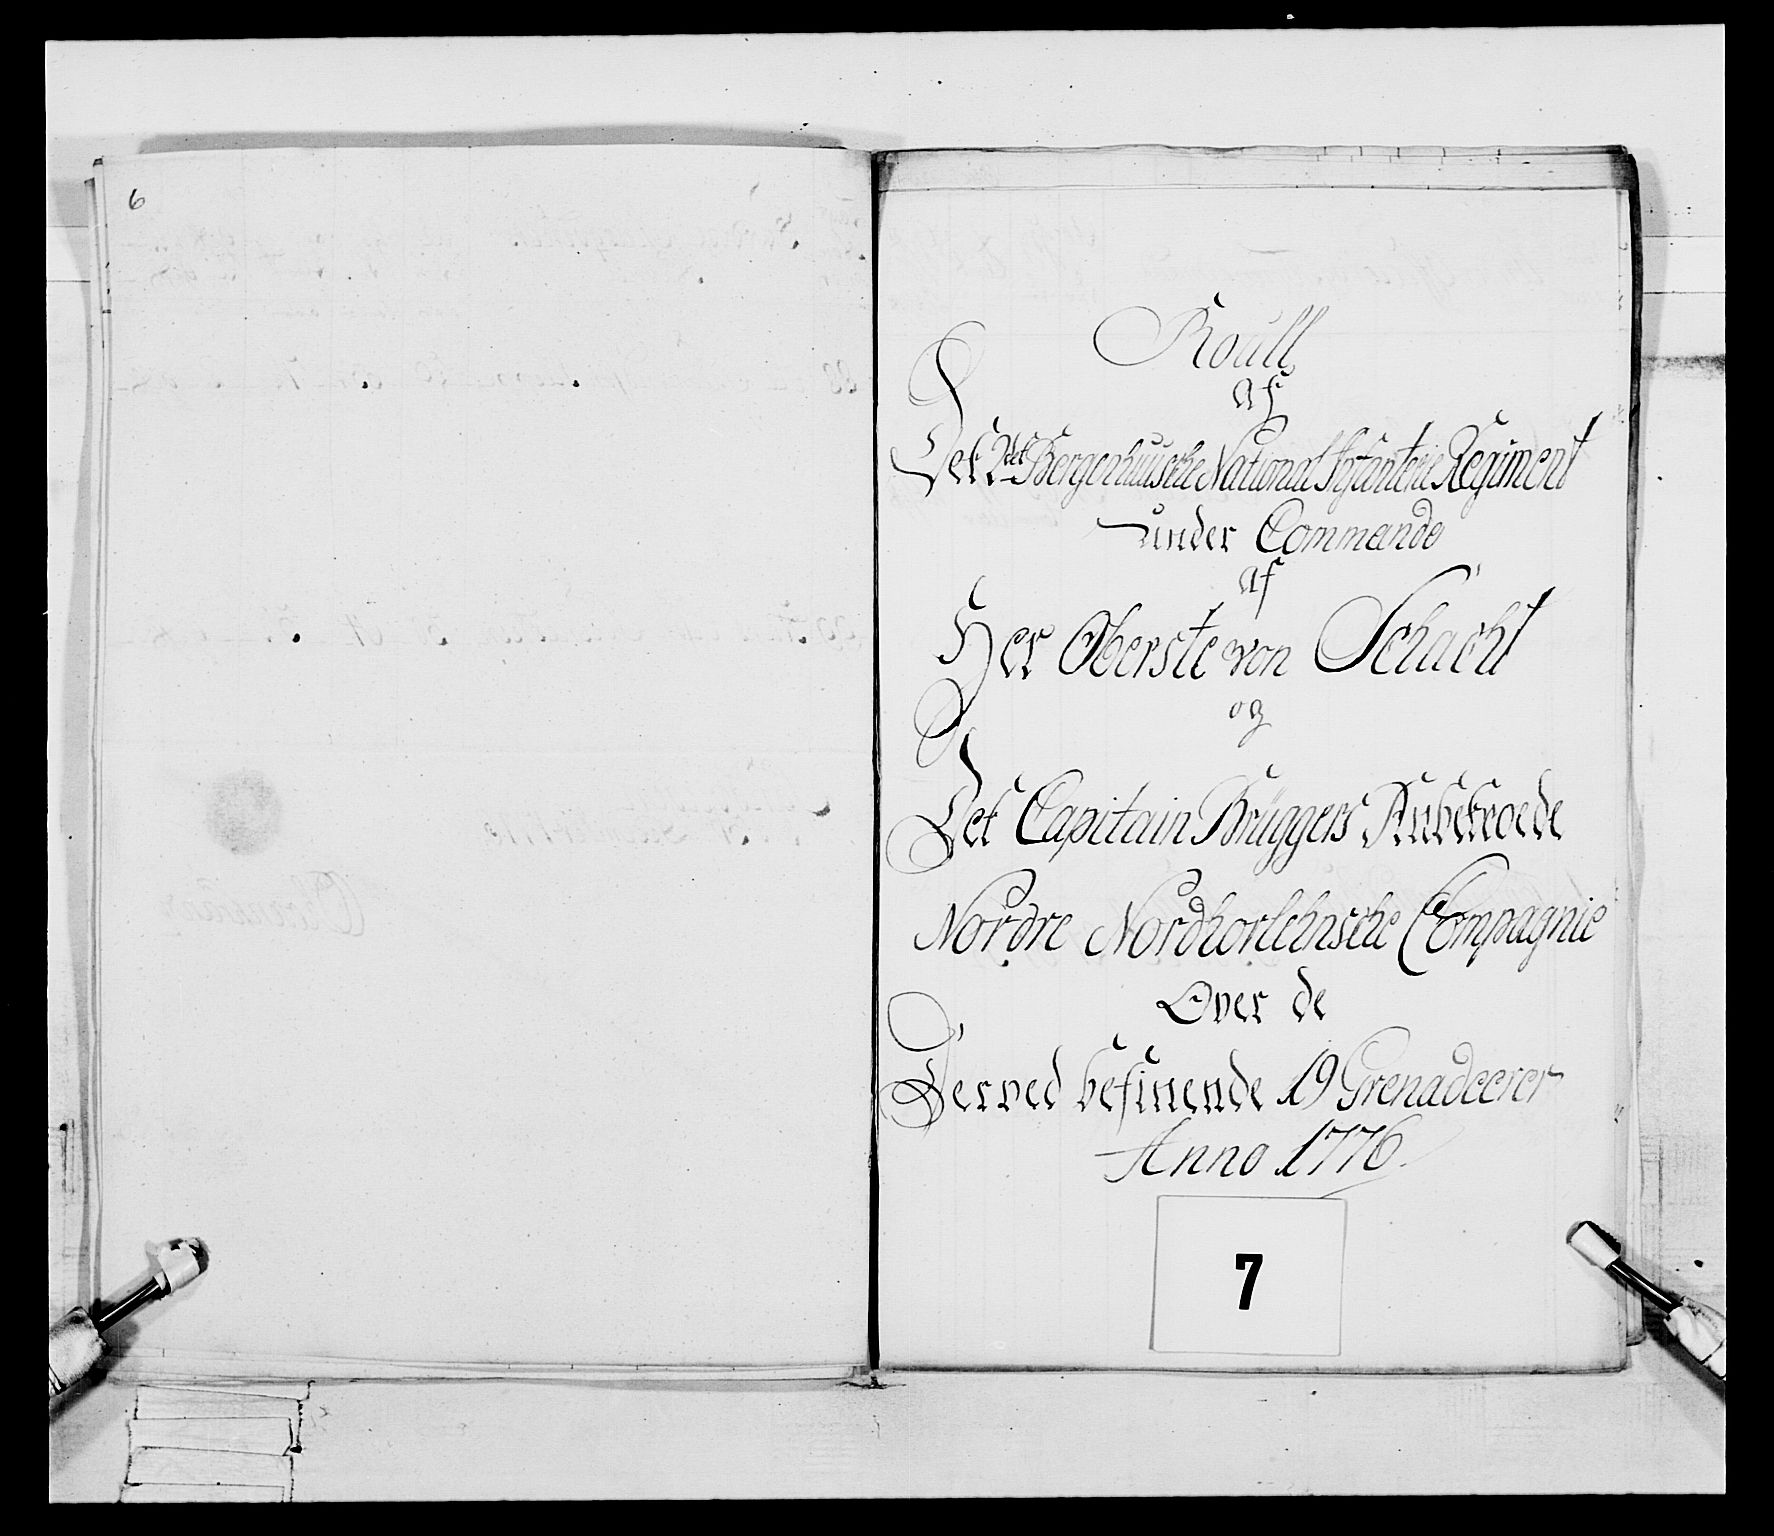 6
Roull
af
Det 2det Bergenhuuske National Infanterie Regiment
under Commando
af
Her Oberste von Schacht
og
Det Capitain Brüggers Anbetroede
Nordre Nordhorlehnsche Compagnie
Over de
Derved befinende 19 Grenadeerer
Anno 1776.
7